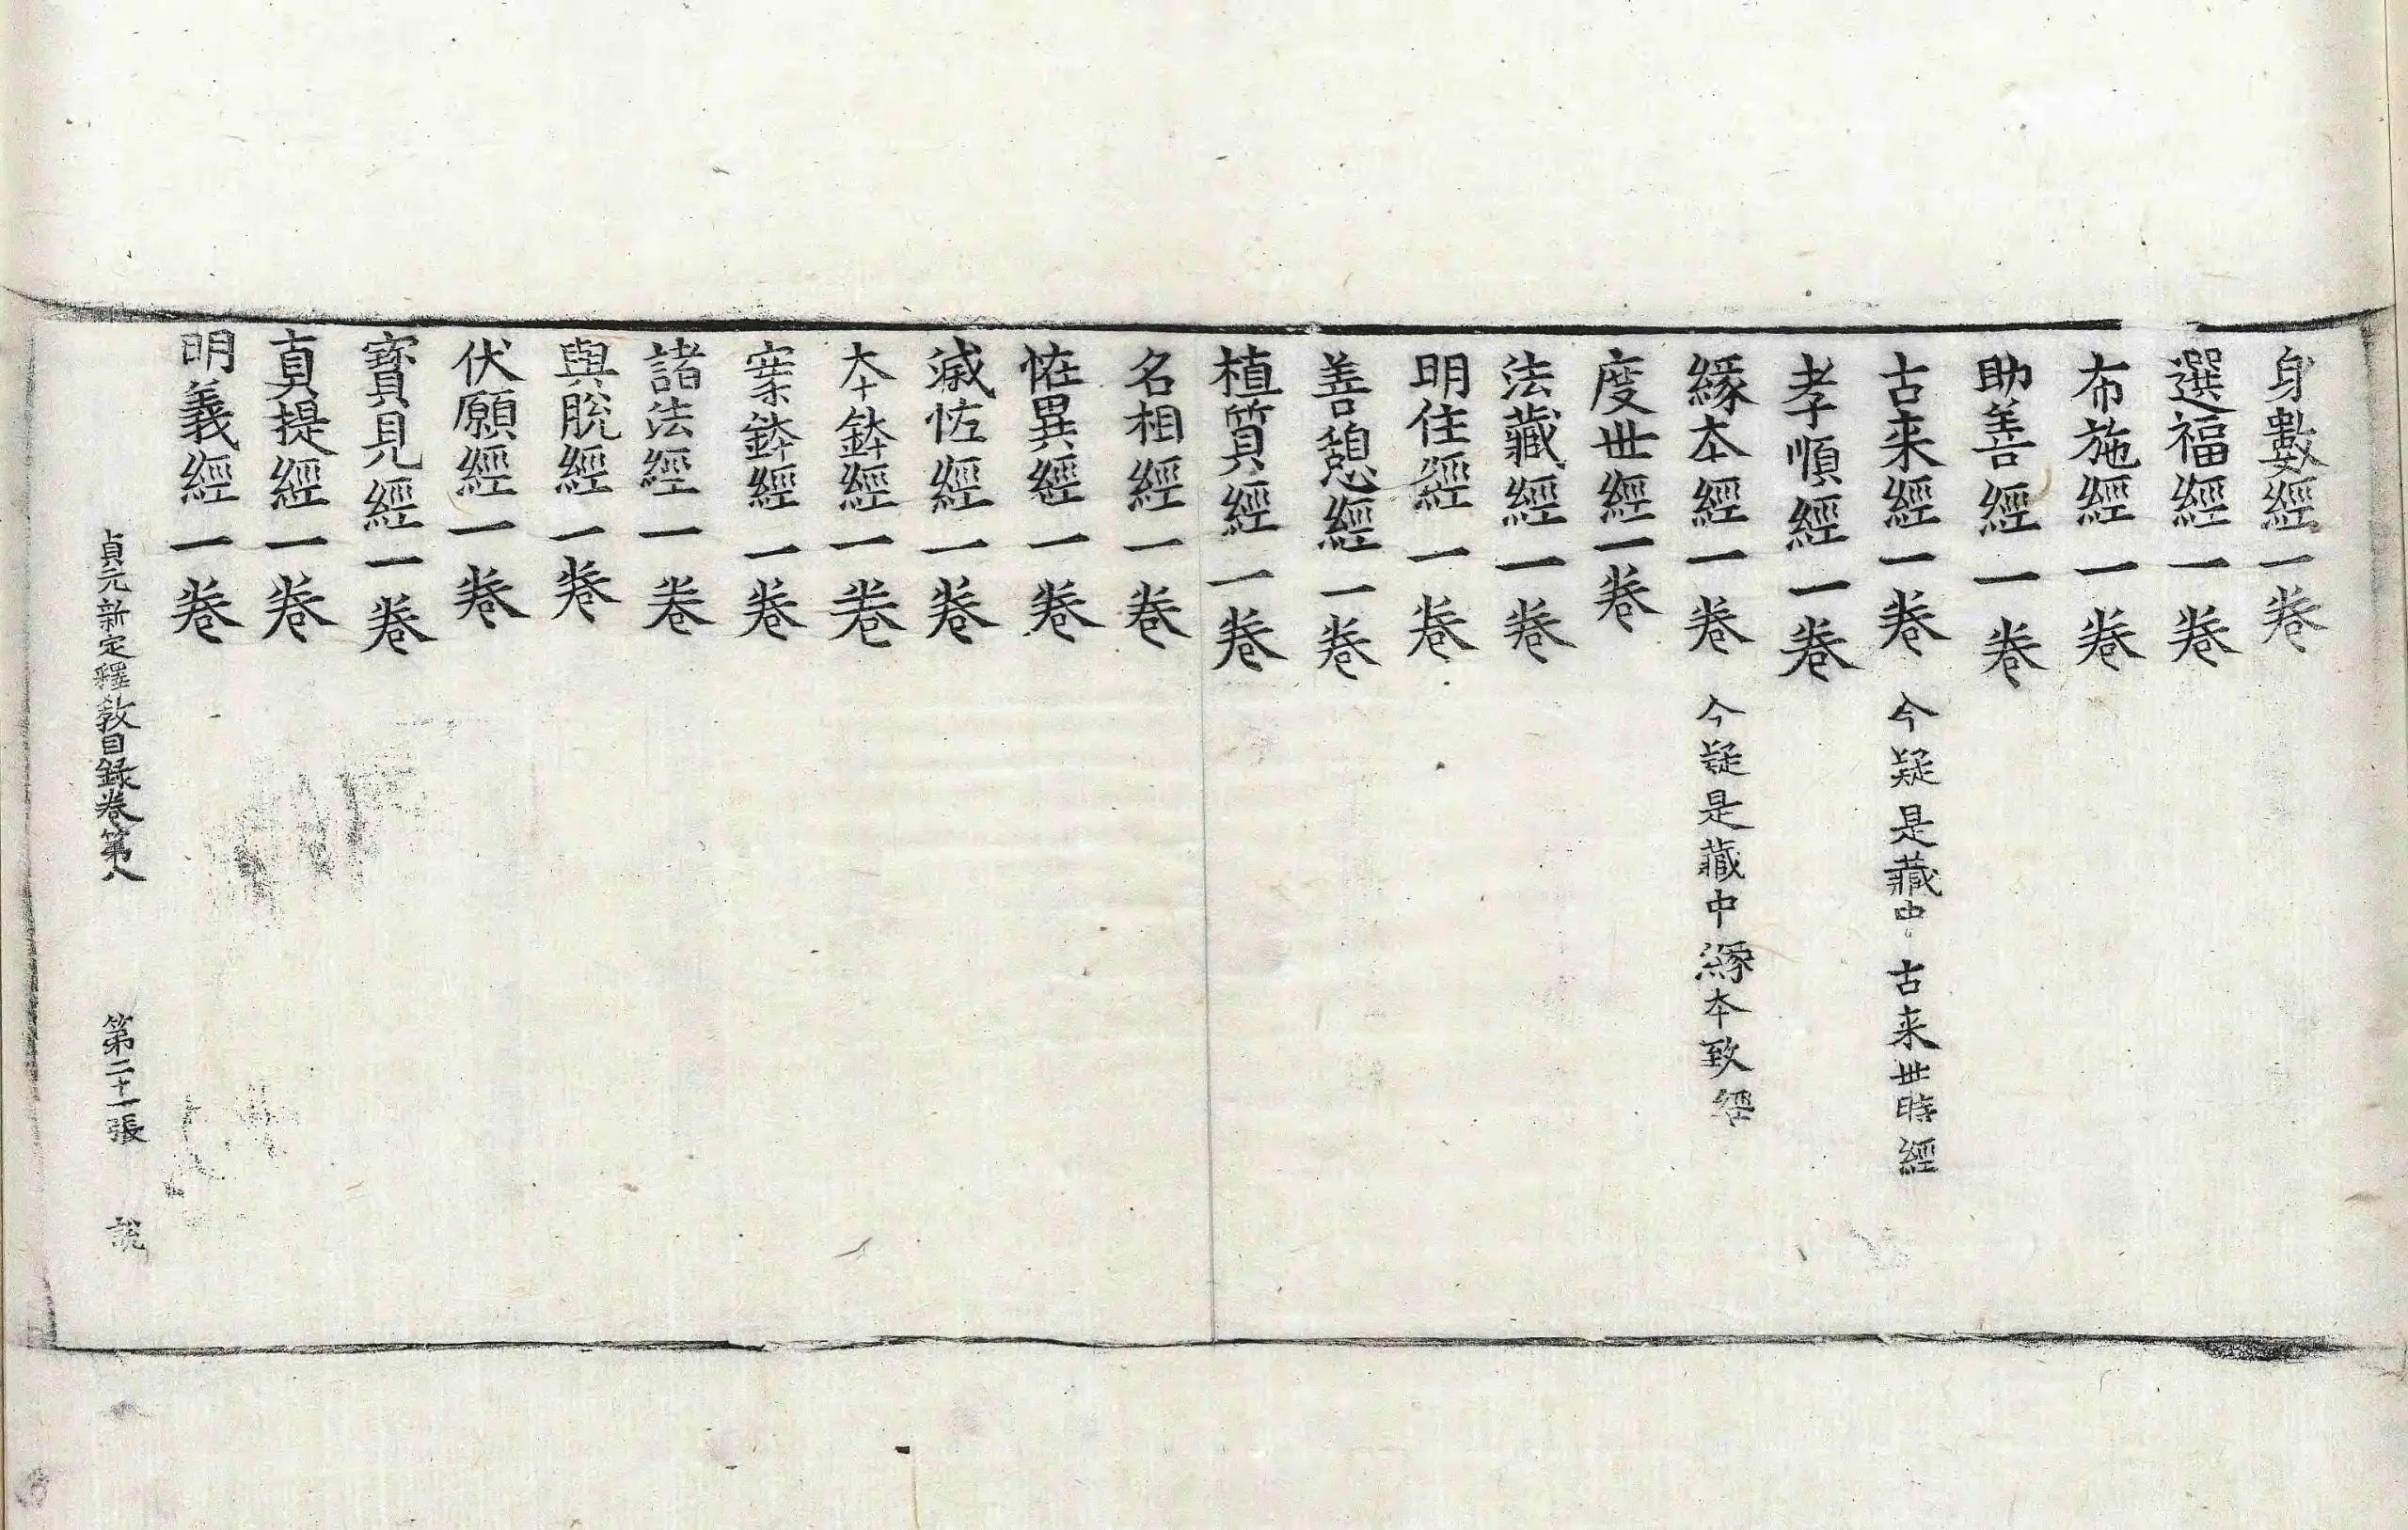 身數經一卷
選福經一卷
布施經一卷
助善經一卷
古来經一卷 今疑是藏中古来世時經
孝順經一卷
緣本經一卷 今疑是藏中緣本致經
度世經一卷
法藏經一卷
明住經一卷
善憩經一卷
植質經一卷
名相經一卷
恠異經一卷
經一卷
本鉢經一卷
鉢經一卷
諸法經一卷
與脫經一卷
伏願經一卷
寶見經一卷
眞提經一卷
明義經一卷
貞元新定釋教目錄卷第八 第二十一張 說